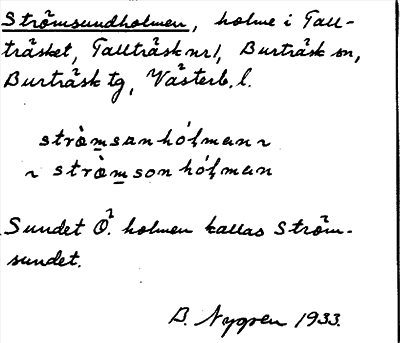 Strömsundholmen, holme i Tall-
träsket, Tallträsk nr 1, Burträsk sn,
Burträsk tg, Västerb. l.
strò̀m̲sanhóļman ~
~ strò̀m̲sonhóļman
Sundet Ö. holmen kallas Ström-
sundet.
B. Nygren 1933.